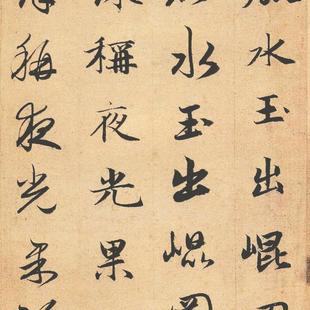 水玉出崐
水玉出崐
稱夜光果
稱夜光果